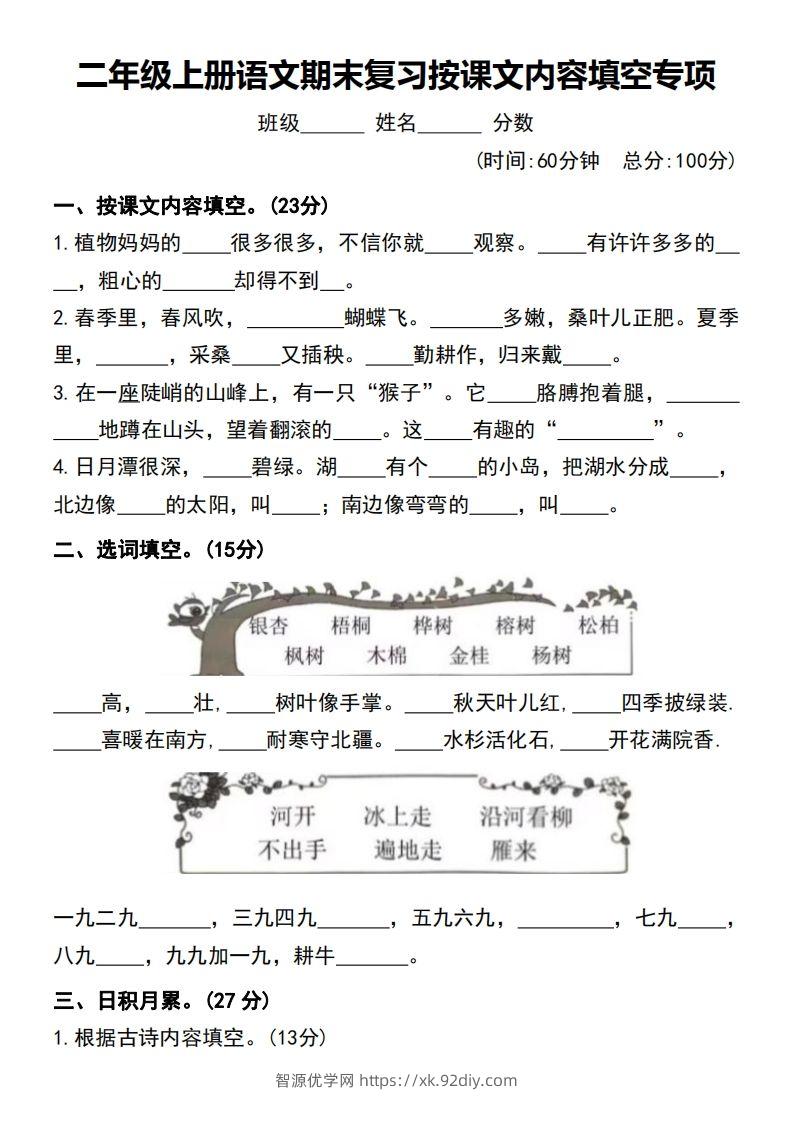 二年级上册语文期末复习按课文内容填空专项
班级______ 姓名______ 分数
(时间:60分钟 总分:100分)
一、按课文内容填空。(23分)
1.植物妈妈的____很多很多，不信你就____观察。____有许许多多的__
__，粗心的______却得不到__。
2.春季里，春风吹，________蝴蝶飞。______多嫩，桑叶儿正肥。夏季
里，______，采桑____又插秧。____勤耕作，归来戴____。
3.在一座陡峭的山峰上，有一只“猴子”。它____胳膊抱着腿，______
____地蹲在山头，望着翻滚的____。这____有趣的“________”。
4.日月潭很深，____碧绿。湖____有个____的小岛，把湖水分成____，
北边像____的太阳，叫____；南边像弯弯的____，叫____。
二、选词填空。(15分)
银杏 梧桐 桦树 榕树 松柏
枫树 木棉 金桂 杨树
____高，____壮,____树叶像手掌。____秋天叶儿红,____四季披绿装.
____喜暖在南方,____耐寒守北疆。____水杉活化石,____开花满院香.
河开 冰上走 沿河看柳
不出手 遍地走 雁来
一九二九______，三九四九______，五九六九，________，七九____，
八九____，九九加一九，耕牛______。
三、日积月累。(27 分)
1.根据古诗内容填空。(13分)
智源优学网 https://xk.92diy.com